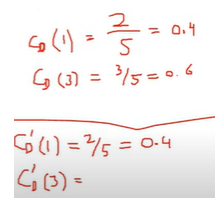 C_D(1) = 2/5 = 0.4
C_D(3) = 3/5 = 0.6
C_D'(1) = 2/5 = 0.4
C_D'(3) =